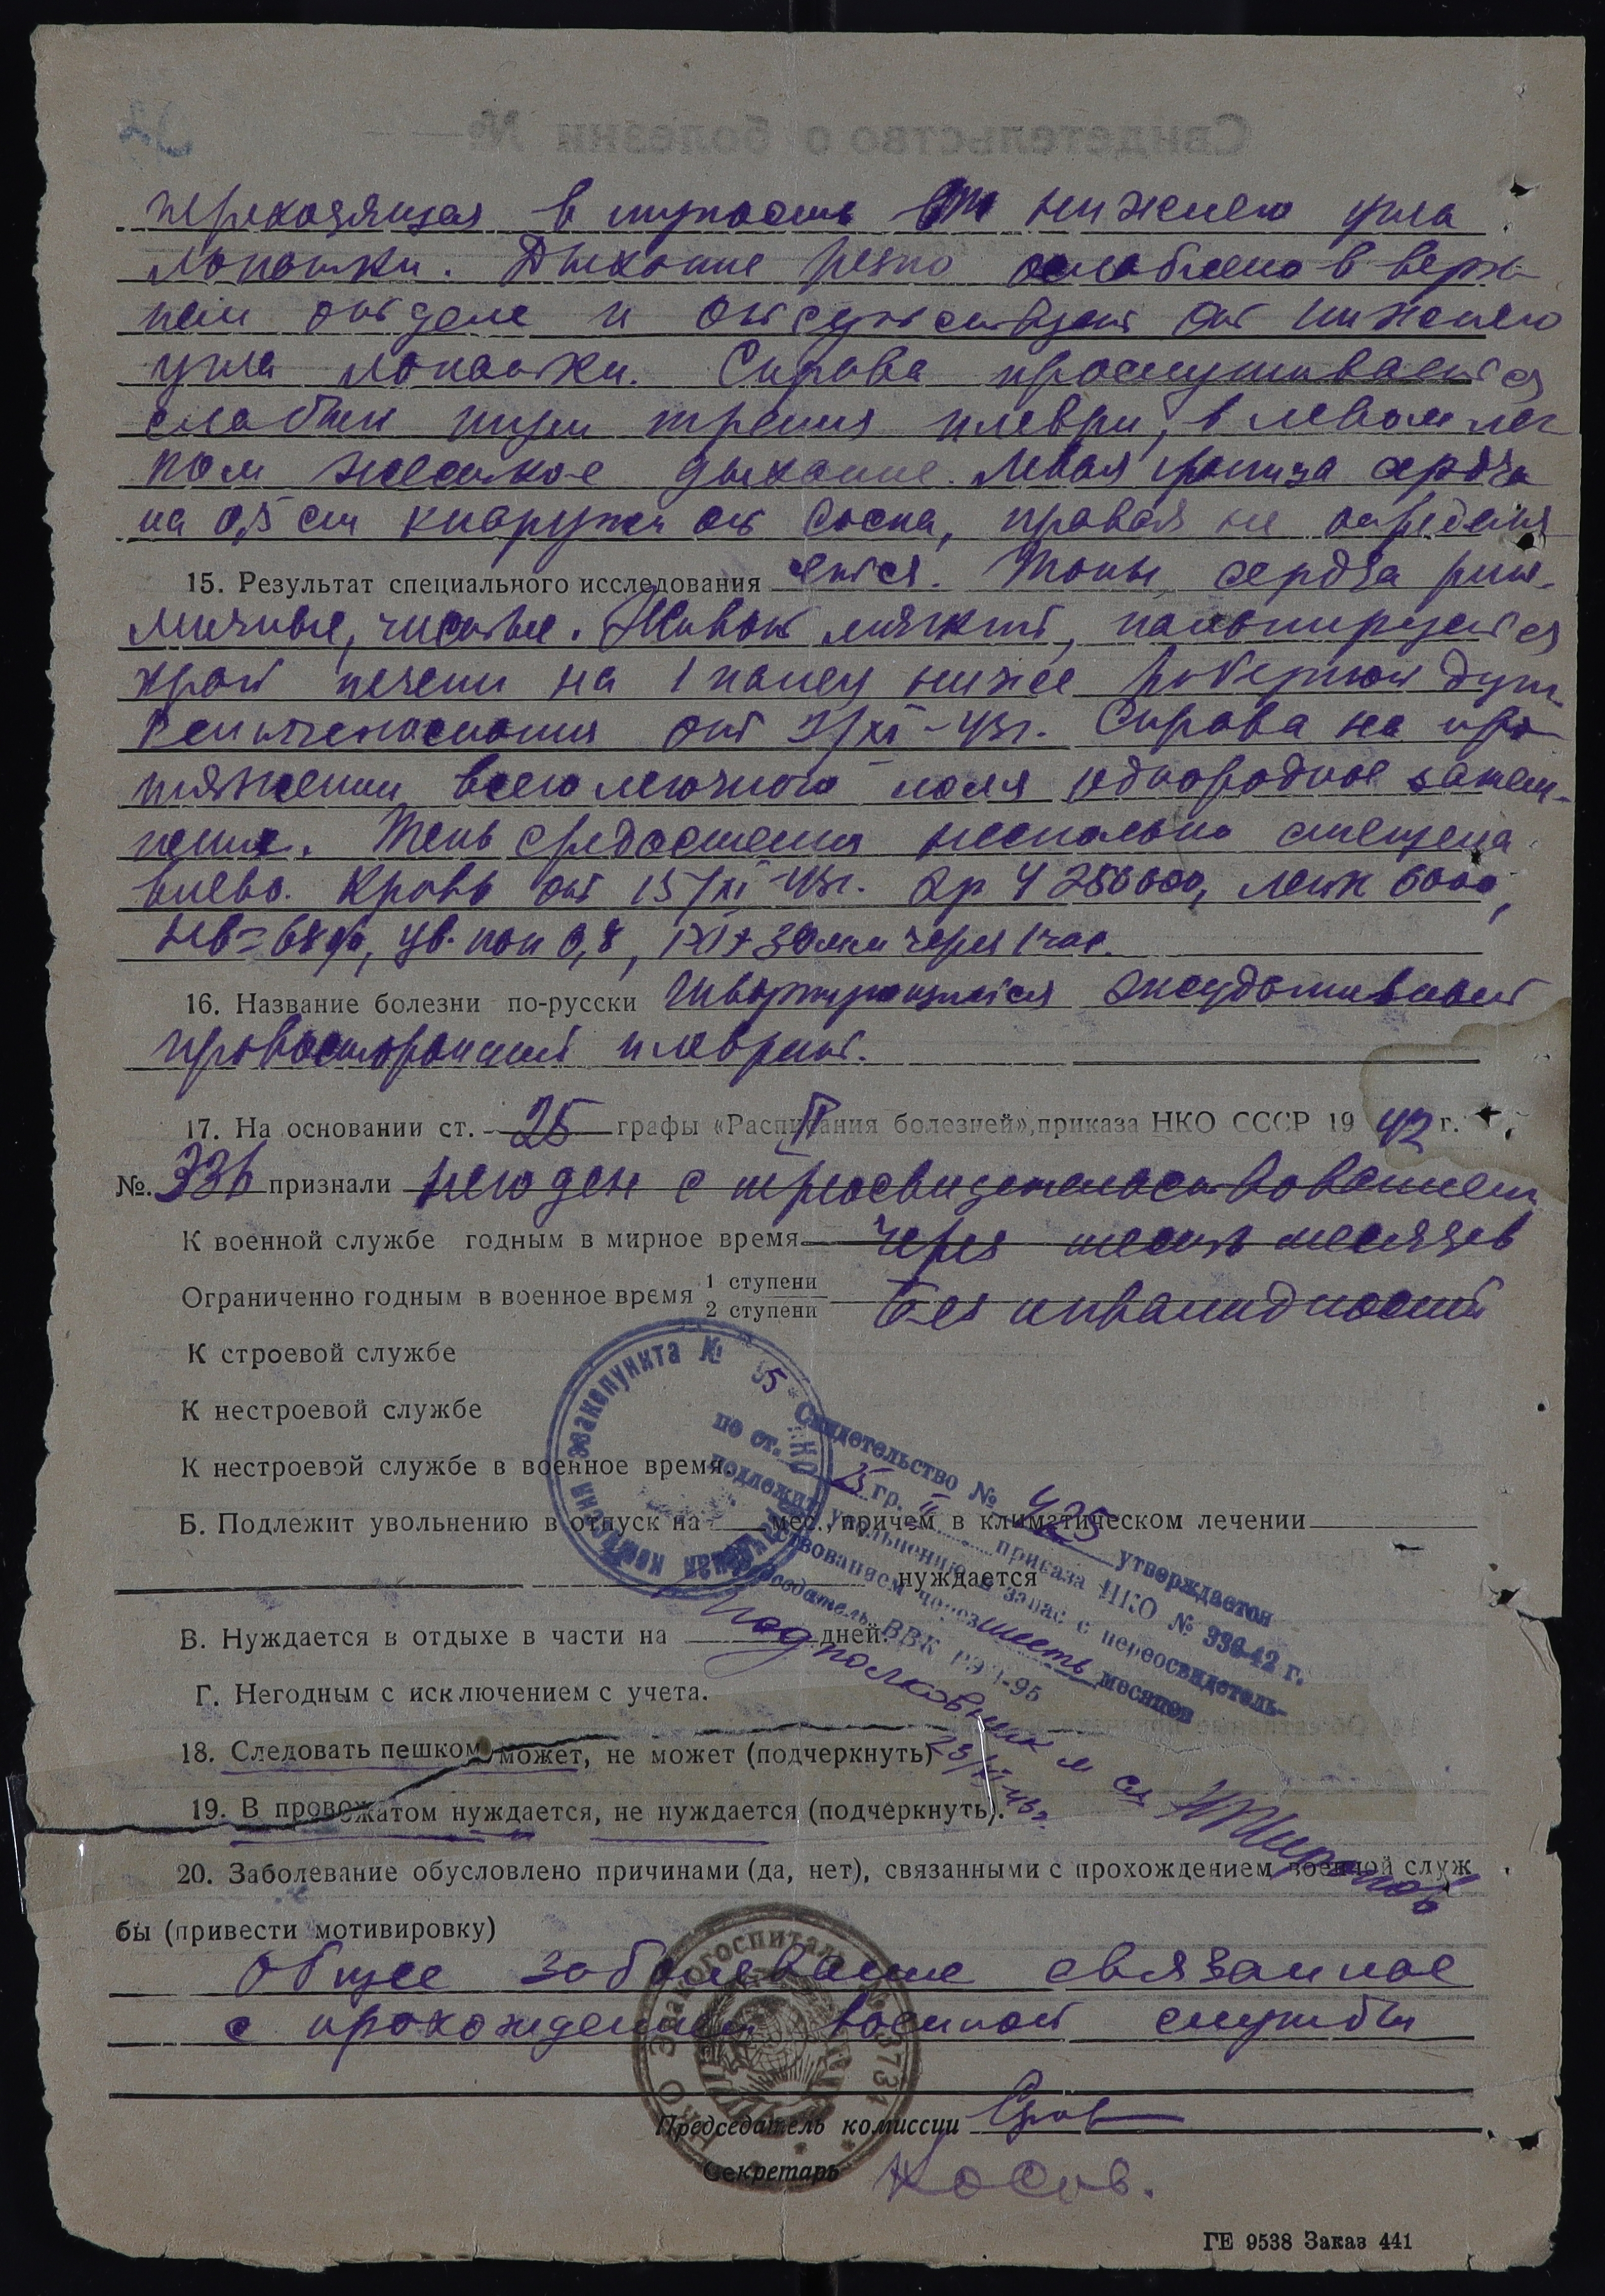 Свидетельство о болезни №
переходящая в тупость от нижнего угла
лопатки. Дыхание резко ослаблено в верх-
нем отделе и отсутствует от нижнего
угла лопатки. Справа прослушивается
слабый шум трения плевры, в левом лег
ком жесткое дыхание. Левая граница сердца
на 0,5 см кнаружи от соска, правая не определя
15. Результат специального исследования ется. Тоны сердца рит-
мичные, чистые. Живот мягкий, пальпируется
край печени на 1 палец ниже реберной дуги.
Рентгеноскопия от /XI-43г. Справа на про
тяжении всего легочного поля однородное затем-
нение. Тень средостения несколько смещена
влево. Кровь от 15/XI-43г. Эр 4 250000, лейк 6000,
Нв=68%, цв. пок 0,8, РОЭ 30мм через 1 час.
16. Название болезни по-русски Швартирующийся экссудативный
правосторонний плеврит.
17. На основании ст. 25 графы II «Расписания болезней», приказа НКО СССР 1942 г.
№. 336 признали негоден с переосвидетельствованием
К военной службе годным в мирное время через шесть месяцев
Ограниченно годным в военное время 1 ступени 2 ступени Без инвалидности
К строевой службе
К нестроевой службе
К нестроевой службе в военное время
Б. Подлежит увольнению в отпуск на мес., причем в климатическом лечении
нуждается
В. Нуждается в отдыхе в части на дней.
Г. Негодным с исключением с учета.
Свидетельство № 425 утверждается
по ст. 25 гр. II приказа НКО № 336-42 г.
подлежит увольнению в запас с переосвидетель-
ствованием через шесть месяцев
Председатель ВВК РЭП-95
Подполковник м сл
23/XI-43г.
18. Следовать пешком может, не может (подчеркнуть)
19. В провожатом нуждается, не нуждается (подчеркнуть).
20. Заболевание обусловлено причинами (да, нет), связанными с прохождением военной служ
бы (привести мотивировку)
Общее заболевание связанное
с прохождением военной службы
Председатель комиссии
Секретарь Косов.
ГЕ 9538 Заказ 441